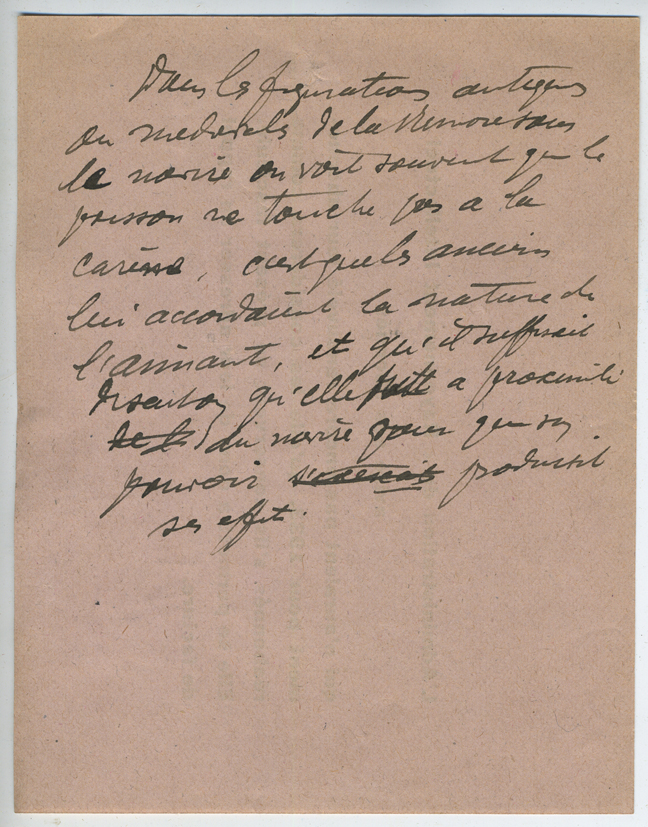 Dans les figurations antiques
ou médiévales de la Rémore sous
le navire on voit souvent que le
poisson ne touche pas a la
carène, c'est que les anciens
lui accordaient la nature de
l'aimant, et qu'il suffisait
disait on qu'elle fut a proximité
de la du navire pour que son
pouvoir s'exerçait produisit
ses effets.